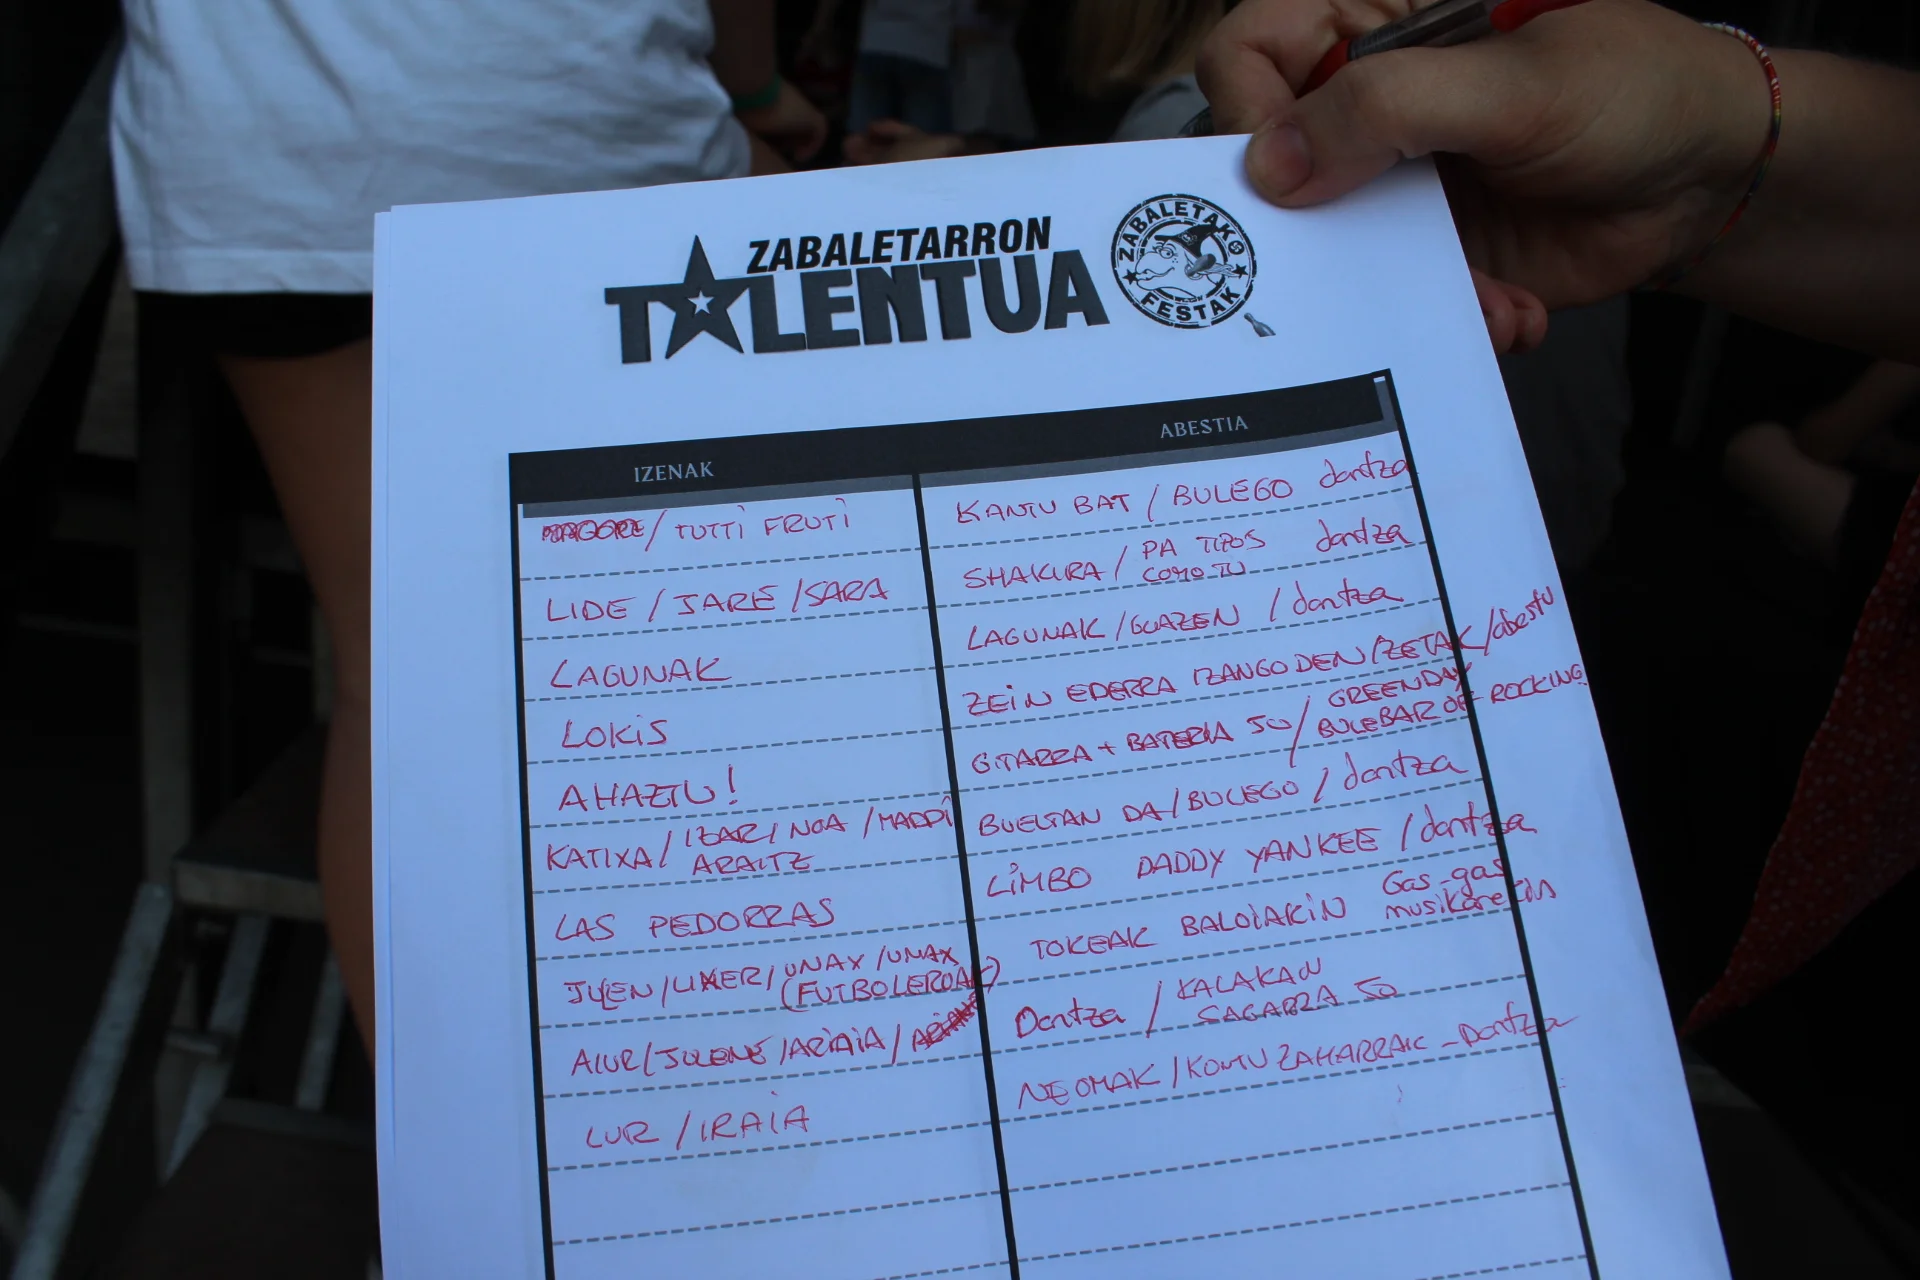 ZABALETARRON
TALENTUA
ZABALETAKO
FESTAK
IZENAK ABESTIA
/ TUTTI FRUTI KANTU BAT / BULEGO dantza
LIDE / JARE / SARA SHAKIRA / PA TIPOS dantza
COMO TU
LAGUNAK LAGUNAK / GUAZEN / dantza
LOKIS ZEIN EDERRA IZANGO DEN / ZETAK / abestu
AHAZTU! GITARRA + BATERIA JO / GREENDAY
BULEBAR OF ROCKING
KATIXA / IZAR / NOA / MADDI BUELTAN DA / BULEGO / dantza
ARAITZ
LAS PEDORRAS LIMBO DADDY YANKEE / dantza
JULEN / UXER / UNAX / UNAX TOKEAK BALOIAKIN Gas-gas
(FUTBOLEROAK) musikarekin
AIUR / JULENE / ARIAIA / Dantza / KALAKAN
SAGARRA JO
LUR / IRAIA NEOMAK / KONTU ZAHARRAK - Dantza